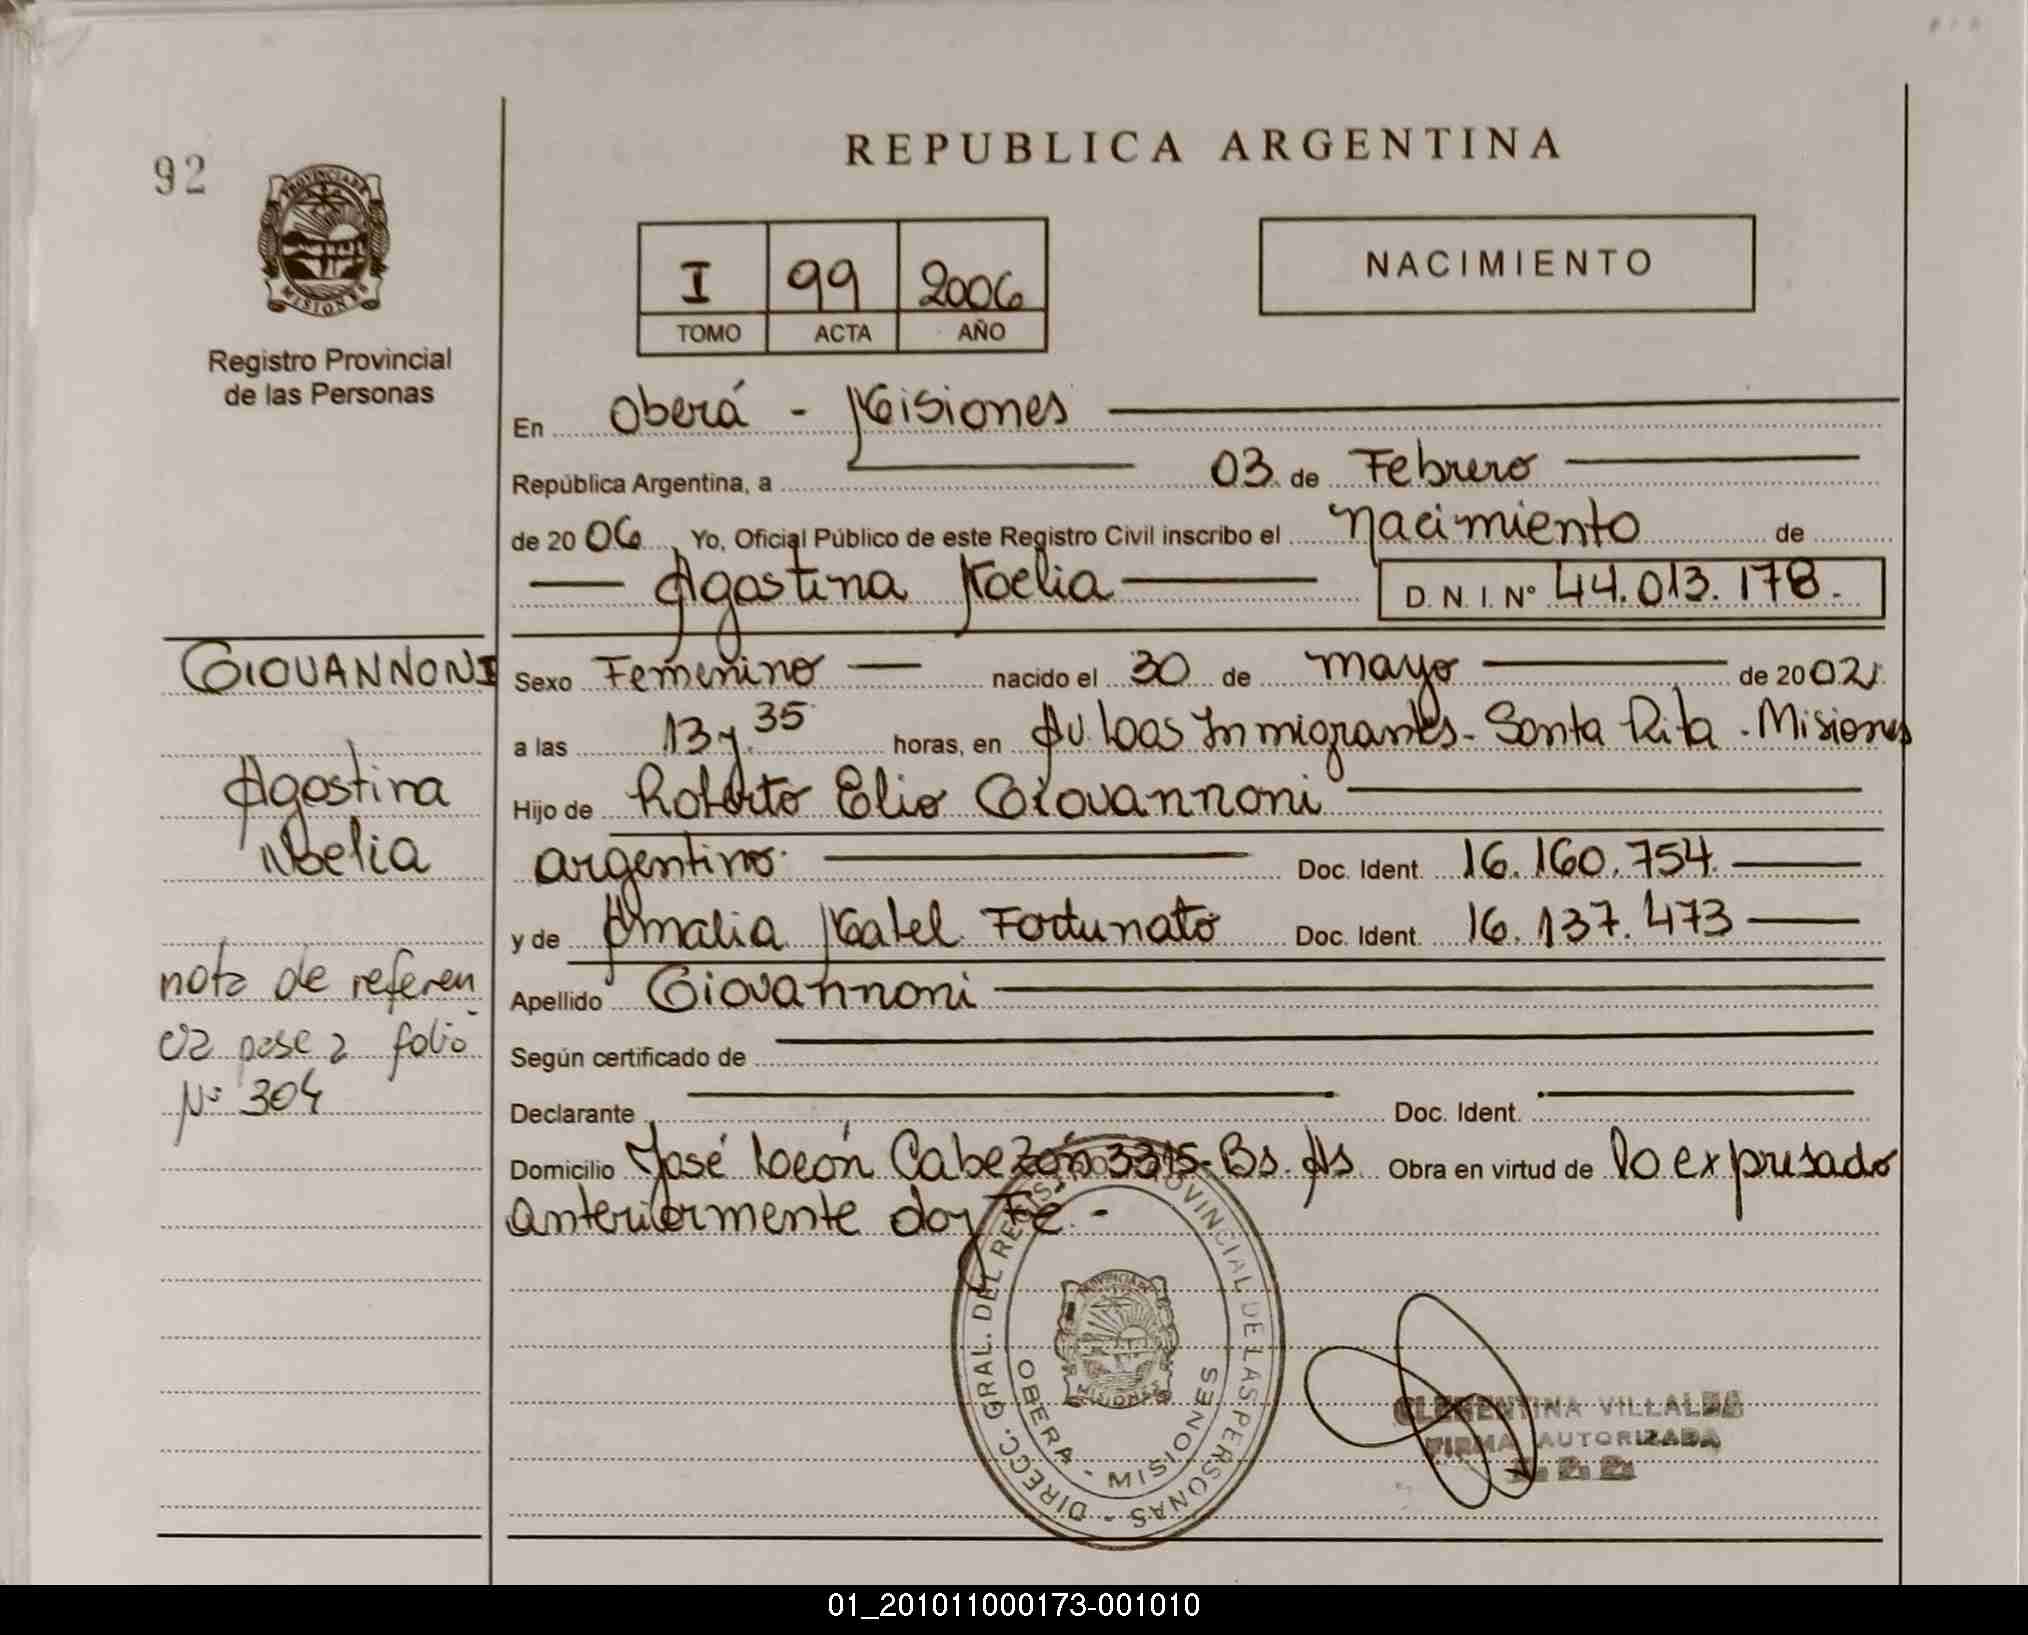 92
PROVINCIA DE
MISIONES
Registro Provincial
de las Personas
REPUBLICA ARGENTINA
I 99 2006
TOMO ACTA AÑO
NACIMIENTO
En Oberá - Misiones
República Argentina, a 03 de Febrero
de 2006 Yo, Oficial Público de este Registro Civil inscribo el Nacimiento de
Agostina Noelia D. N. I. Nº 44.013.178.-
GIOVANNONI
Agostina
Noelia
nota de referen
cia pase a folio
Nº 304
Sexo Femenino nacido el 30 de mayo de 2002
a las 13 y 35 horas, en Av. Loas Inmigrantes - Santa Rita - Misiones
Hijo de Roberto Elio Giovannoni
argentino. Doc. Ident. 16.160.754.
y de Amalia Mabel Fortunato Doc. Ident. 16.137.473
Apellido Giovannoni
Según certificado de
Declarante Doc. Ident.
Domicilio José León Cabezón 3315- Bs. As Obra en virtud de lo expresado
anteriormente doy Fé.-
DIRECC. GRAL. DEL REGISTRO PROVINCIAL DE LAS PERSONAS -
PROVINCIA DE
MISIONES
OBERA - MISIONES
CLEMENTINA VILLALBA
FIRMA AUTORIZADA
01_201011000173-001010